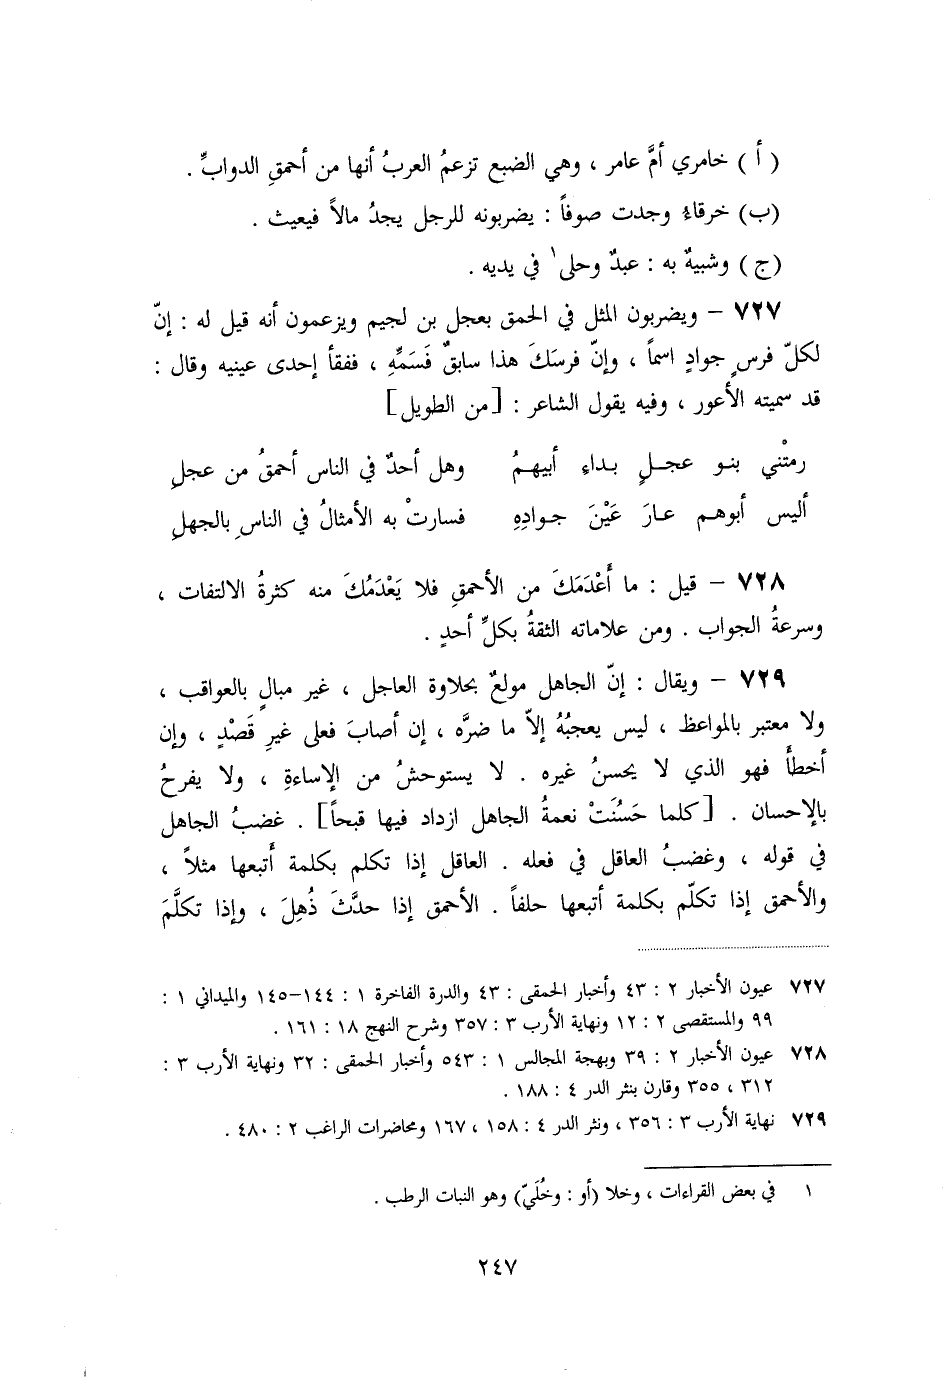 ( أ ) خامري أمَّ عامر ، وهي الضبع تزعمُ العربُ أنها من أحمقِ الدوابِّ .
(ب) خرقاءُ وجدت صوفاً : يضربونه للرجل يجدُ مالاً فيعيث .
(ج ) وشبيهٌ به : عبدٌ وحلى١ في يديه .
٧٢٧ – ويضربون المثل في الحمق بعجل بن لجيم ويزعمون أنه قيل له : إنّ
لكلّ فرسٍ جوادٍ اسماً ، وإنّ فرسَكَ هذا سابقٌ فَسَمِّهِ ، ففقأ إحدى عينيه وقال :
قد سميته الأعور ، وفيه يقول الشاعر : [من الطويل]
رمتْني بنو عجلٍ بداءِ أبيهمُ وهل أحدٌ في الناس أحمقُ من عجلِ
أليس أبوهم عارَ عَيْنَ جوادِهِ فسارتْ به الأمثالُ في الناسِ بالجهلِ
٧٢٨ – قيل : ما أَعْدَمَكَ من الأحمقِ فلا يَعْدَمُكَ منه كثرةُ الالتفات ،
وسرعةُ الجواب . ومن علاماته الثقةُ بكلِّ أحدٍ .
٧٢٩ – ويقال : إنّ الجاهل مولعٌ بحلاوة العاجل ، غير مبالٍ بالعواقب ،
ولا معتبر بالمواعظ ، ليس يعجبُهُ إلاّ ما ضرَّه ، إن أصابَ فعلى غيرِ قَصْدٍ ، وإن
أخطأَ فهو الذي لا يحسنُ غيره . لا يستوحشُ من الإساءةِ ، ولا يفرحُ
بالإحسان . [كلما حَسُنَتْ نعمةُ الجاهل ازداد فيها قبحاً] . غضبُ الجاهل
في قوله ، وغضبُ العاقل في فعله . العاقل إذا تكلم بكلمة أَتبعها مثلاً ،
والأحمق إذا تكلّم بكلمة أتبعها حلفاً . الأحمق إذا حدَّثَ ذُهِلَ ، وإذا تكلَّمَ
٧٢٧ عيون الأخبار ٢ : ٤٣ وأخبار الحمقى : ٤٣ والدرة الفاخرة ١ : ١٤٤–١٤٥ والميداني ١ :
٩٩ والمستقصى ٢ : ١٢ ونهاية الأرب ٣ : ٣٥٧ وشرح النهج ١٨ : ١٦١ .
٧٢٨ عيون الأخبار ٢ : ٣٩ وبهجة المجالس ١ : ٥٤٣ وأخبار الحمقى : ٣٢ ونهاية الأرب ٣ :
٣١٢ ، ٣٥٥ وقارن بنثر الدر ٤ : ١٨٨ .
٧٢٩ نهاية الأرب ٣ : ٣٥٦ ، ونثر الدر ٤ : ١٥٨ ، ١٦٧ ومحاضرات الراغب ٢ : ٤٨٠ .
١ في بعض القراءات ، وخلا (أو : وخُلَيّ) وهو النبات الرطب .
٢٤٧